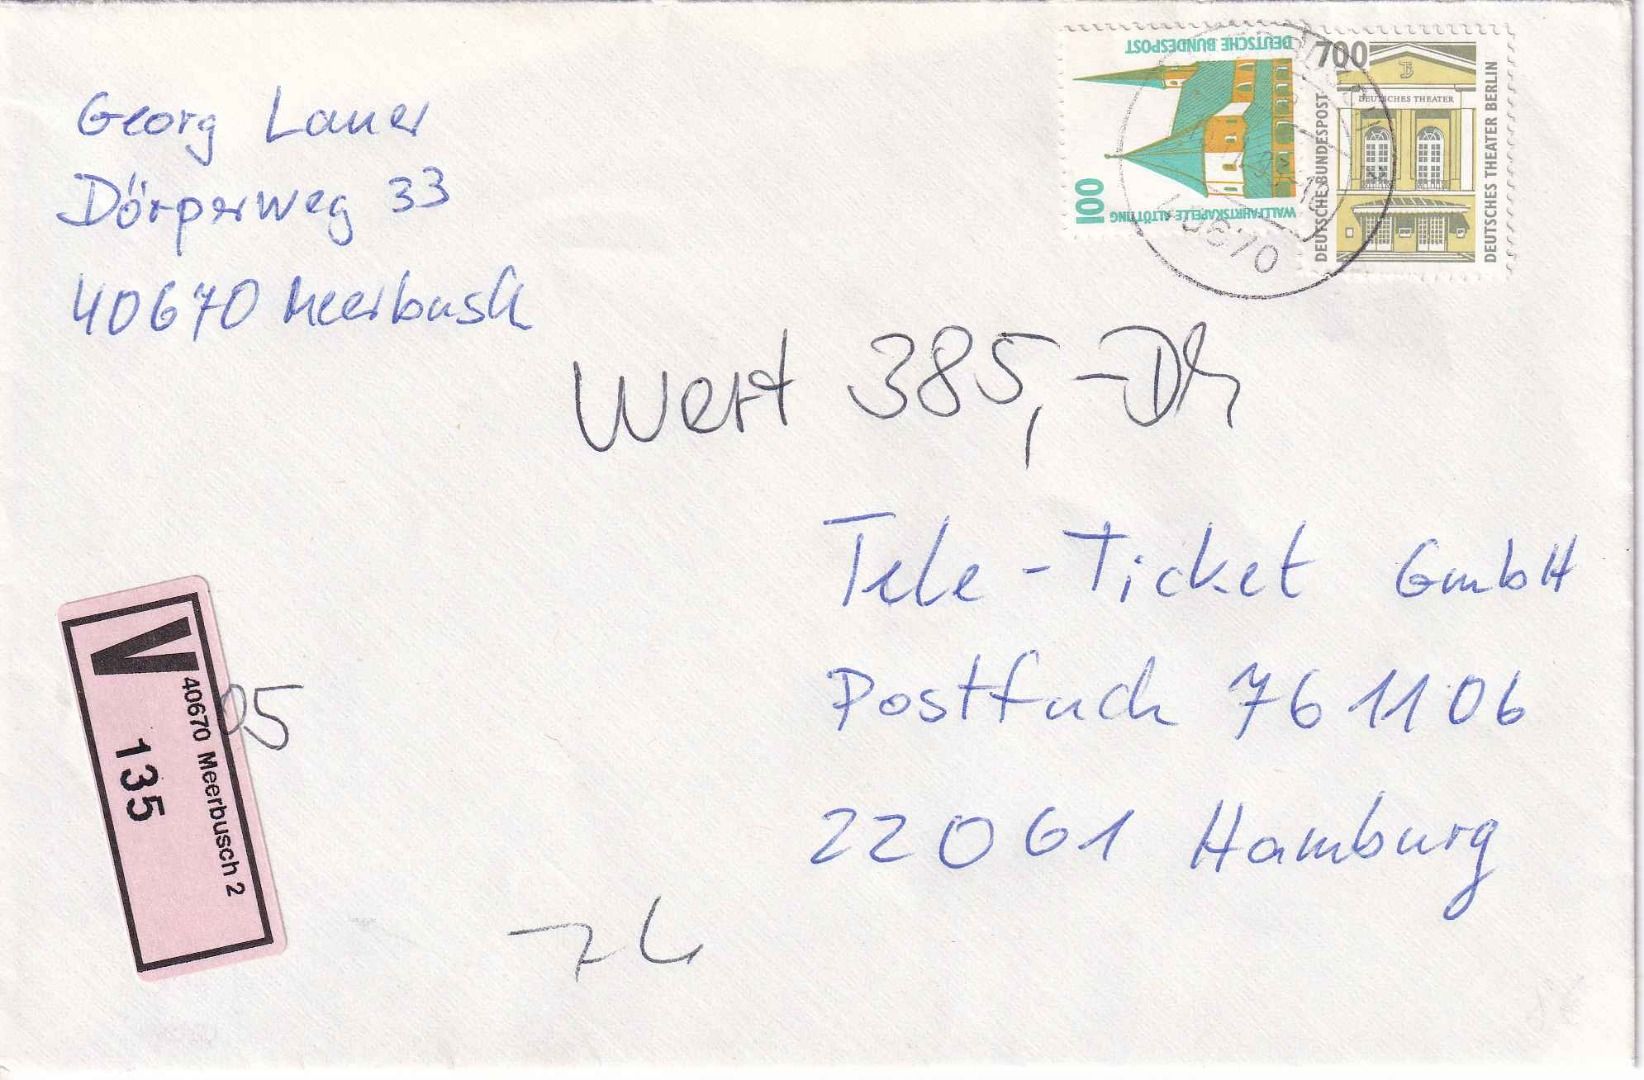 Georg Lauer
Dörperweg 33
40670 Meerbusch
DEUTSCHE BUNDESPOST
100
WALLFAHRTSKAPELLE ALTÖTTING
700
DEUTSCHE BUNDESPOST
DEUTSCHES THEATER
DEUTSCHES THEATER BERLIN
40670
Wert 385,- DM
Tele-Ticket GmbH
Postfach 761106
22061 Hamburg
V
40670 Meerbusch 2
135